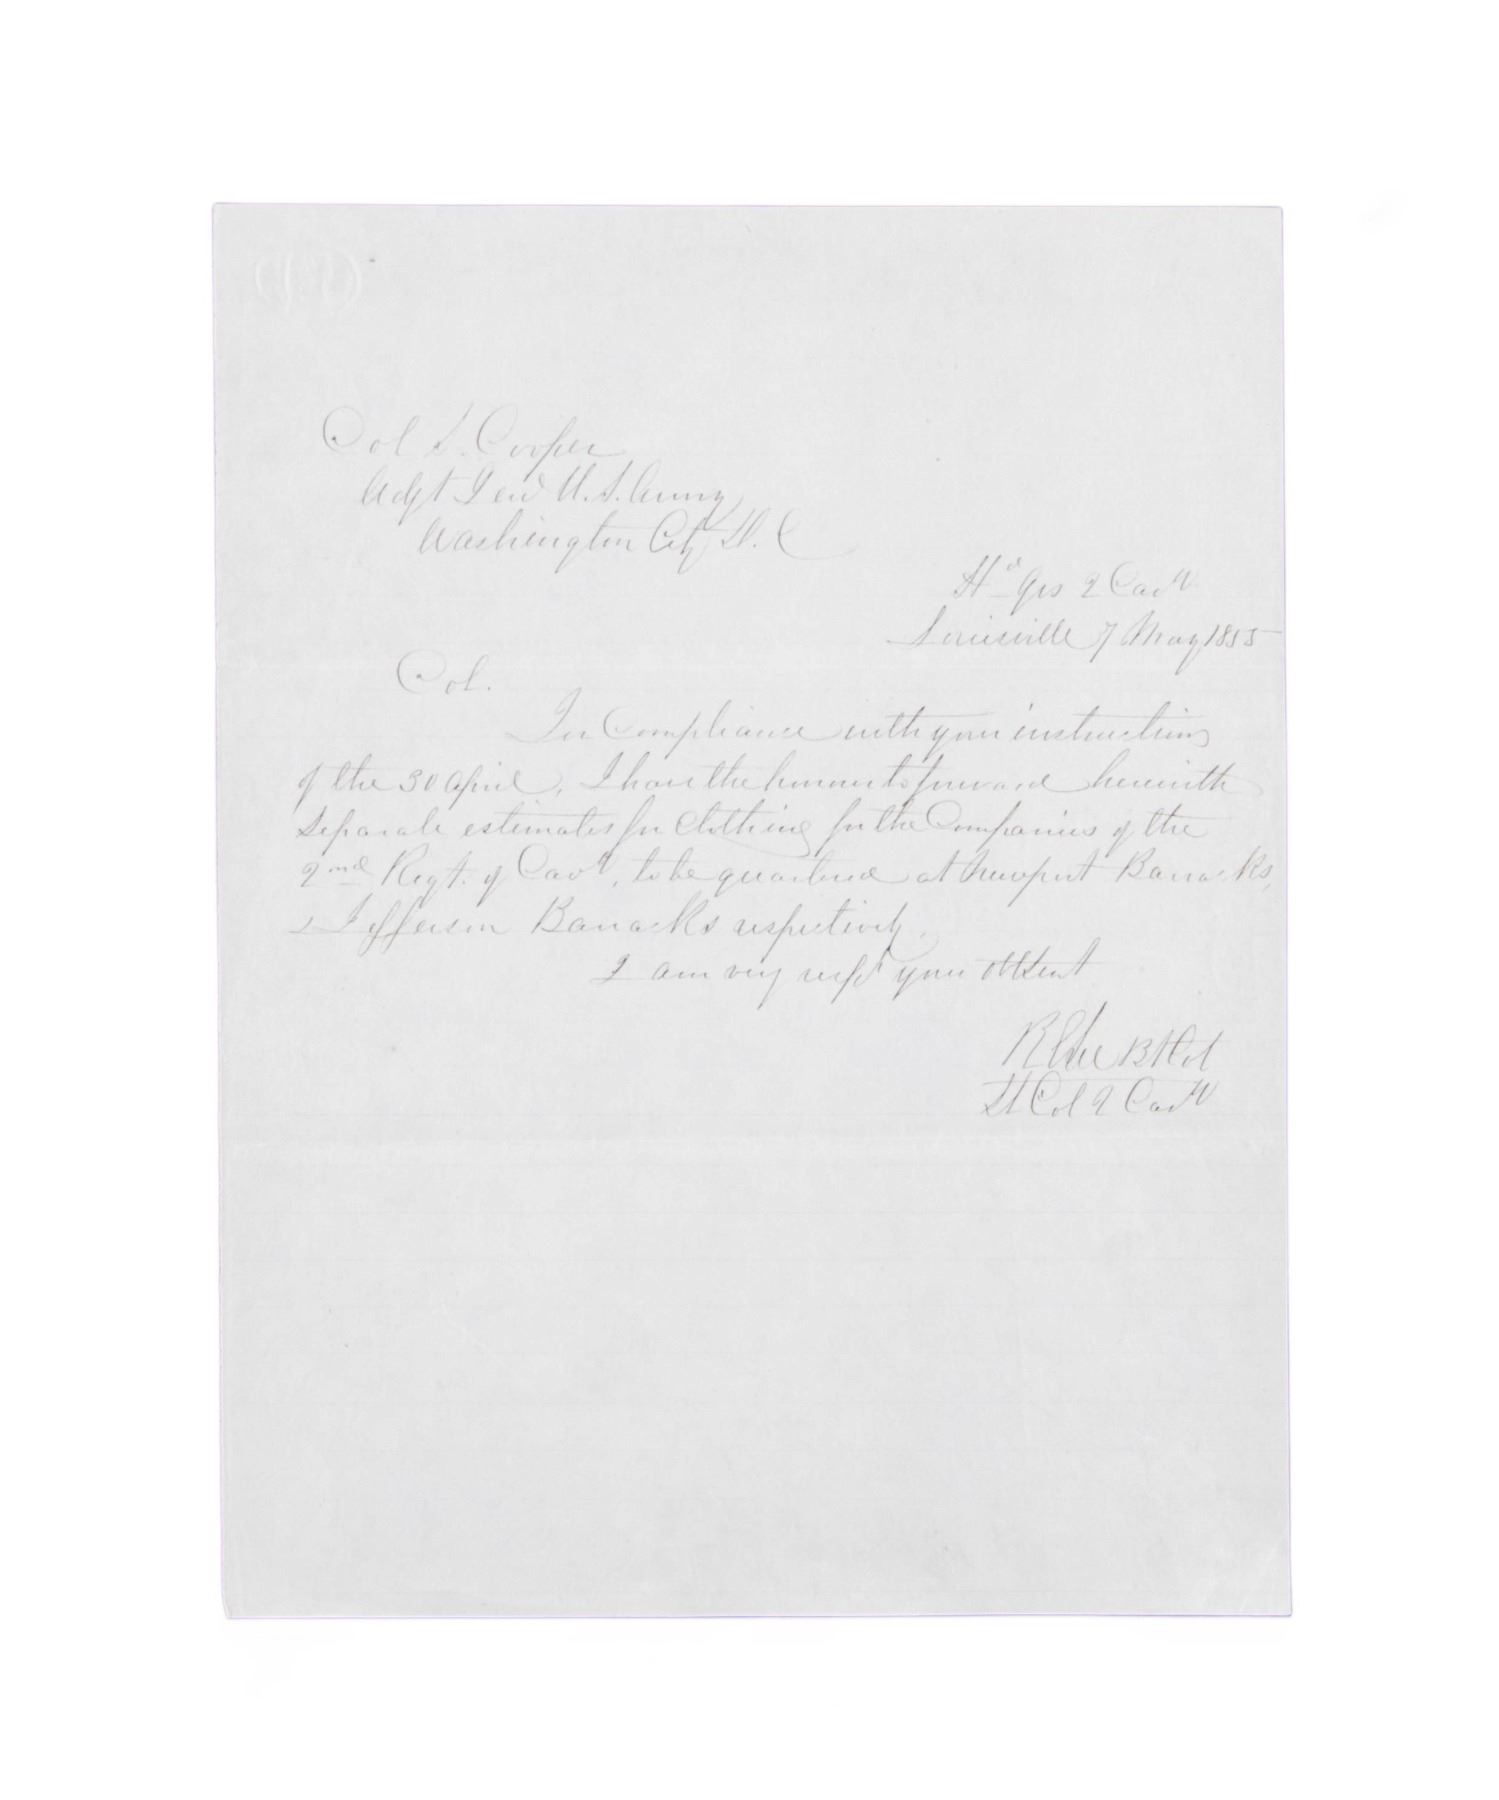 Col S. Cooper
Adjt Genl U. S. Army
Washington City D. C
Hd Qrs 2 Cavy
Louisville 7 May 1855
Col.
In compliance with your instructions
of the 30 April, I have the honour to forward herewith
separate estimates for clothing for the Companies of the
2nd Regt. of Cavy, to be quartered at Newport Barracks,
& Jefferson Barracks respectively.
I am very respy your obt Servt
R E Lee Bt Col
Lt Col 2 Cavy